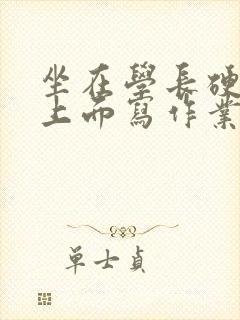 坐在學長硬
上而寫作業
單士貞